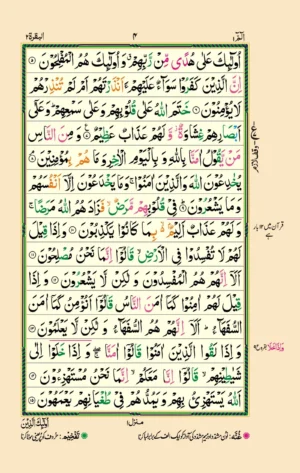 البقرة ٢
٤
الٓمّٓ ١
اُولٰٓئِكَ عَلٰى هُدًى مِّنْ رَّبِّهِمْ وَ اُولٰٓئِكَ هُمُ الْمُفْلِحُوْنَ ۝۵
اِنَّ الَّذِيْنَ كَفَرُوْا سَوَآءٌ عَلَيْهِمْ ءَاَنْذَرْتَهُمْ اَمْ لَمْ تُنْذِرْهُمْ
لَا يُؤْمِنُوْنَ ۝۶ خَتَمَ اللّٰهُ عَلٰى قُلُوْبِهِمْ وَعَلٰى سَمْعِهِمْ ؕ وَعَلٰٓى
اَبْصَارِهِمْ غِشَاوَةٌ ؗ وَّلَهُمْ عَذَابٌ عَظِيْمٌ ۝۷ وَمِنَ النَّاسِ
مَنْ يَّقُوْلُ اٰمَنَّا بِاللّٰهِ وَبِالْيَوْمِ الْاٰخِرِ وَمَا هُمْ بِمُؤْمِنِيْنَ ۝۸
يُخٰدِعُوْنَ اللّٰهَ وَالَّذِيْنَ اٰمَنُوْا ۚ وَمَا يَخْدَعُوْنَ اِلَّآ اَنْفُسَهُمْ
وَمَا يَشْعُرُوْنَ ۝۹ فِيْ قُلُوْبِهِمْ مَّرَضٌ ۙ فَزَادَهُمُ اللّٰهُ مَرَضًا ۚ
وَلَهُمْ عَذَابٌ اَلِيْمٌۢ ۙ بِمَا كَانُوْا يَكْذِبُوْنَ ۝۱۰ وَاِذَا قِيْلَ
لَهُمْ لَا تُفْسِدُوْا فِي الْاَرْضِ ۙ قَالُوْٓا اِنَّمَا نَحْنُ مُصْلِحُوْنَ ۝۱۱
اَلَآ اِنَّهُمْ هُمُ الْمُفْسِدُوْنَ وَلٰكِنْ لَّا يَشْعُرُوْنَ ۝۱۲ وَاِذَا
قِيْلَ لَهُمْ اٰمِنُوْا كَمَآ اٰمَنَ النَّاسُ قَالُوْٓا اَنُؤْمِنُ كَمَآ اٰمَنَ
السُّفَهَآءُ ؕ اَلَآ اِنَّهُمْ هُمُ السُّفَهَآءُ وَلٰكِنْ لَّا يَعْلَمُوْنَ ۝۱۳
وَاِذَا لَقُوا الَّذِيْنَ اٰمَنُوْا قَالُوْٓا اٰمَنَّا ۖۚ وَاِذَا خَلَوْا اِلٰى
شَيٰطِيْنِهِمْ ۙ قَالُوْٓا اِنَّا مَعَكُمْ ۙ اِنَّمَا نَحْنُ مُسْتَهْزِءُوْنَ ۝۱۴
اَللّٰهُ يَسْتَهْزِئُ بِهِمْ وَيَمُدُّهُمْ فِيْ طُغْيَانِهِمْ يَعْمَهُوْنَ ۝۱۵
اُولٰٓئِكَ الَّذِيْنَ
منزل ۱